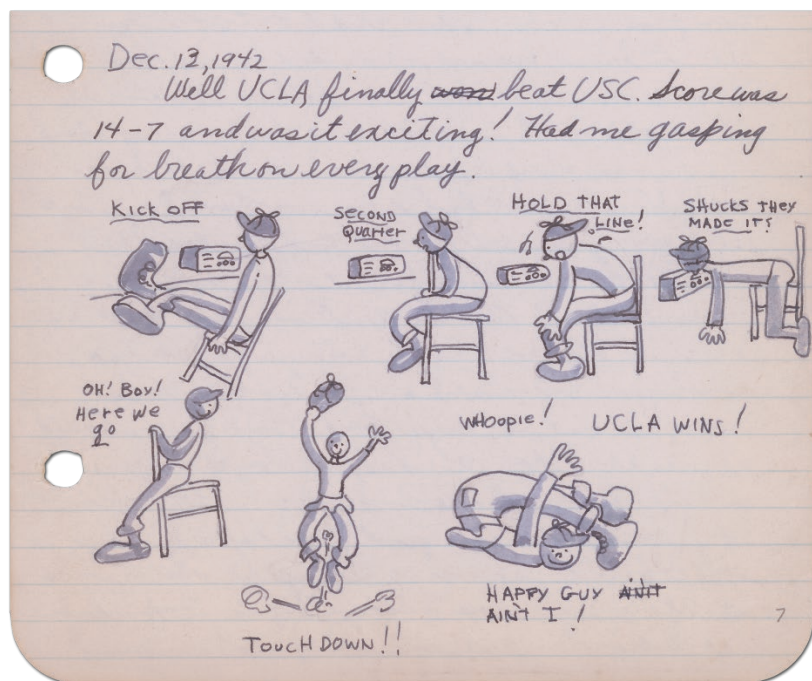 Dec. 13, 1942
Well UCLA finally beat USC. Score was
14-7 and was it exciting! Had me gasping
for breath on every play.
KICK OFF
SECOND
QUARTER
HOLD THAT
LINE!
SHUCKS THEY
MADE IT!!
OH! BOY!
Here we
go
TOUCHDOWN!!
WHOOPIE! UCLA WINS!
HAPPY GUY AINT
AIN'T I!
7